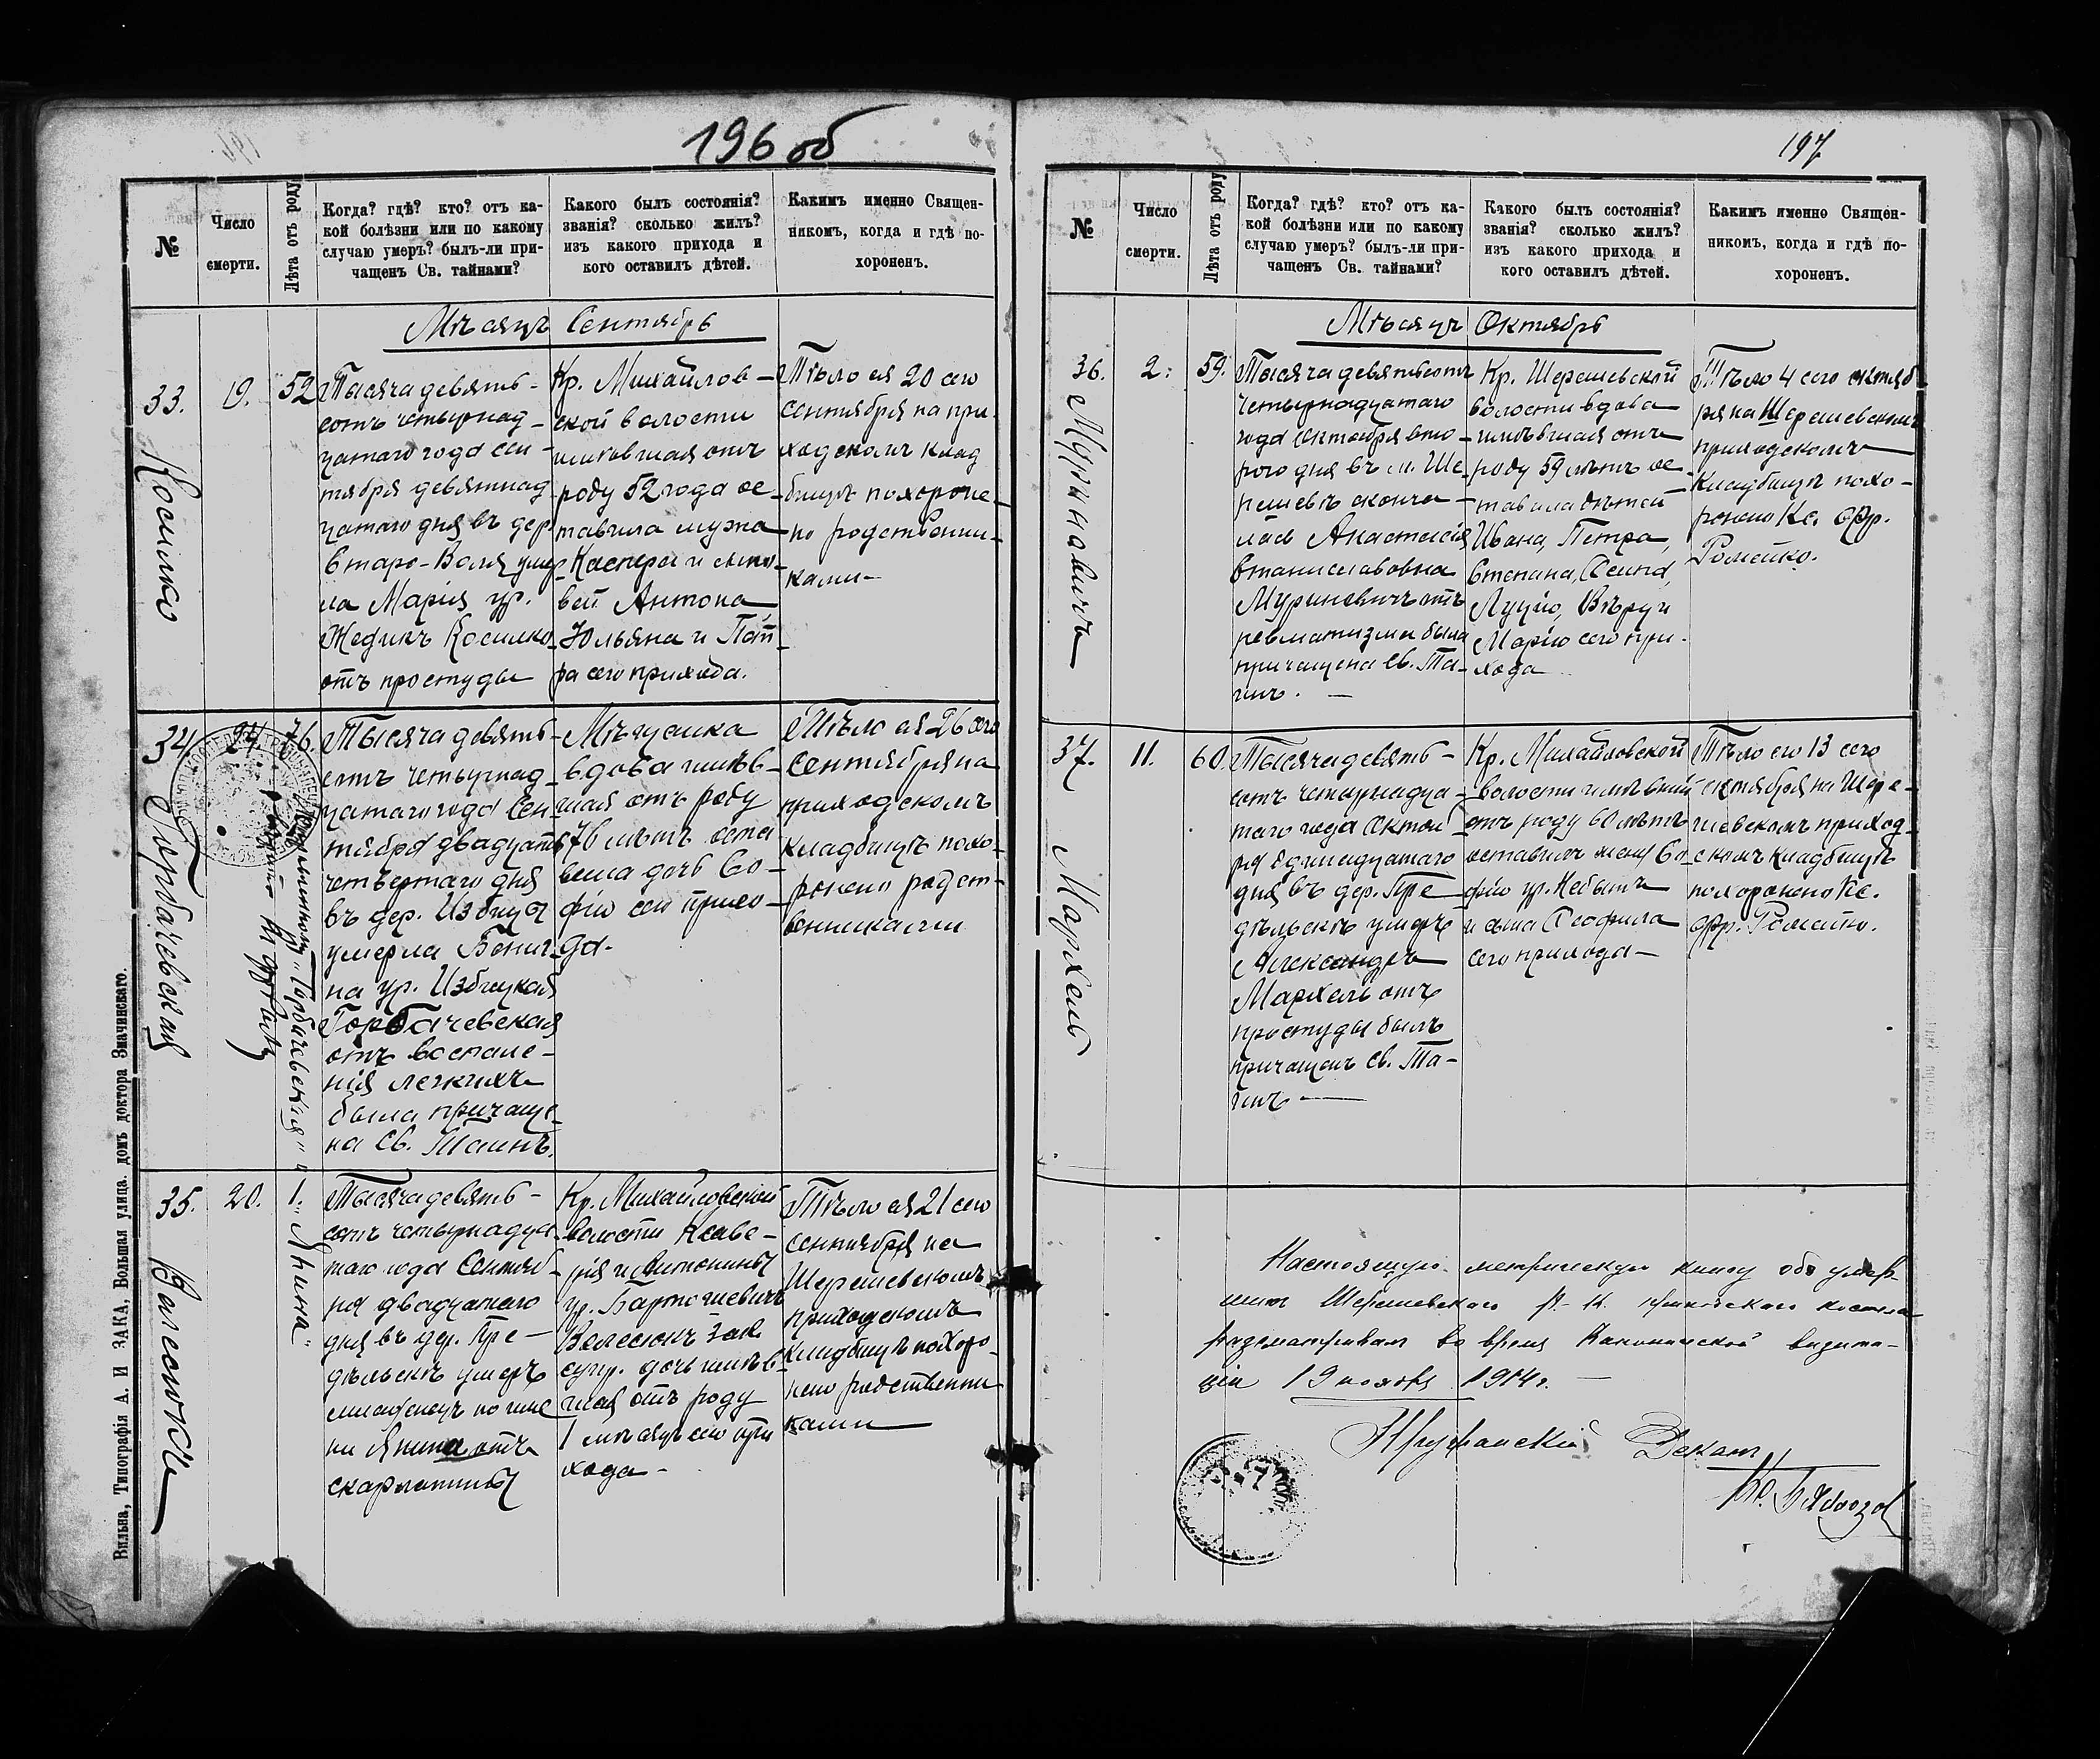 196 об
№
Число
смерти.
Лѣта отъ роду
Когда? гдѣ? кто? отъ ка-
кой болѣзни или по какому
случаю умеръ? былъ-ли при-
чащенъ Св. тайнами?
Какого былъ состоянія?
званія? сколько жилъ?
изъ какого прихода и
кого оставилъ дѣтей.
Какимъ именно Священ-
никомъ, когда и гдѣ по-
хороненъ.
Мѣсяцъ Сентябрь
33.
Косилко
19.
52
Тысяча девять-
сотъ четырнад-
цатаго года сен-
тября девятнад-
цатаго дня въ дер.
Старо-Воля умер-
ла Марія ур.
Жедикъ Косилко
отъ простуды
Кр. Михайлов-
ской волости
имѣвшая отъ
роду 52 года ос-
тавила мужа
Каспера и сыно-
вей Антона,
Юльяна и Пет-
ра сего прихода.
Тѣло ея 20 сего
сентября на при-
ходскомъ клад-
бищѣ похороне-
но родственни-
ками-
34.
Горбачевская
24.
76.
Тысяча девять-
сотъ четырнад-
цатаго года Сен-
тября двадцать
четвертаго дня
въ дер. Избица
умерла Бениг-
на ур. Избицкая
Горбачевская
отъ воспале-
нія легкихъ
была причаще-
на Св. Таинъ.
Мѣщанка
вдова имѣв-
шая отъ роду
76 лѣтъ оста-
вила дочь Со-
фію сего прихо-
да-
Тѣло ея 26 сего
Сентября на
приходскомъ
кладбищѣ похо-
ронено родст-
венниками
"Горбачевская" и
"Янина"
35.
Валесюкъ
20.
1.
Тысяча девять-
сотъ четырнадца-
таго года Сентяб-
ря двадцатаго
дня въ дер. Пре-
дѣльскъ умеръ
младенецъ по име-
ни Янина отъ
скарлатины
Кр. Михайловской
волости Ксаве-
рія и Антонины
ур. Бартошевичъ
Валесюкъ зак.
супр. дочь имѣв-
шая отъ роду
1 мѣсяцъ сего при-
хода-
Тѣло ея 21 сего
сентября на
Шерешевскомъ
приходскомъ
кладбищѣ похоро-
нено родственни-
ками
Вильна, Типографія А. И ЗАКА, Большая улица. домъ доктора Значинскаго.
197
№
Число
смерти.
Лѣта отъ роду
Когда? гдѣ? кто? отъ ка-
кой болѣзни или по какому
случаю умеръ? былъ-ли при-
чащенъ Св. тайнами?
Какого былъ состоянія?
званія? сколько жилъ?
изъ какого прихода и
кого оставилъ дѣтей.
Какимъ именно Священ-
никомъ, когда и гдѣ по-
хороненъ.
Мѣсяцъ Октябрь
36.
Муриновичъ
2.
59.
Тысяча девятьсотъ
четырнадцатаго
года октября вто-
рого дня въ м. Ше-
решевѣ сконча-
лась Анастасія
Станиславовна
Муриновичъ отъ
ревматизма была
причащена Св. Та-
инъ. -
Кр. Шерешевской
волости вдова
имѣвшая отъ
роду 59 лѣтъ ос-
тавила дѣтей
Ивана, Петра,
Степана, Осипа,
Луцію, Вѣру и
Марію сего при-
хода
Тѣло 4 сего октяб-
ря на Шерешевскомъ
приходскомъ
кладбищѣ похо-
ронено Кс. Фр.
Ромейко.
37.
Мархель
11.
60.
Тысяча девять-
сотъ четырнадца-
таго года Октяб-
ря одинадцатаго
дня въ дер. Пре-
дѣльскъ умеръ
Александръ
Мархель отъ
простуды былъ
причащенъ Св. Та-
инъ -
Кр. Михайловской
волости имѣвшій
отъ роду 60 лѣтъ
оставилъ жену Со-
фію ур. Небытъ
и сына Теофила
сего прихода-
Тѣло его 13 сего
октября на Шере-
шевскомъ приход-
скомъ кладбищѣ
похоронено Кс.
Фр. Ромейко.
Настоящую метрическую книгу объ умер-
шихъ Шерешевскаго Р.-К. приходскаго костела
разсматривалъ во время Канонической визита-
ціи 19 ноября 1914 г. -
Пружанскій Деканъ